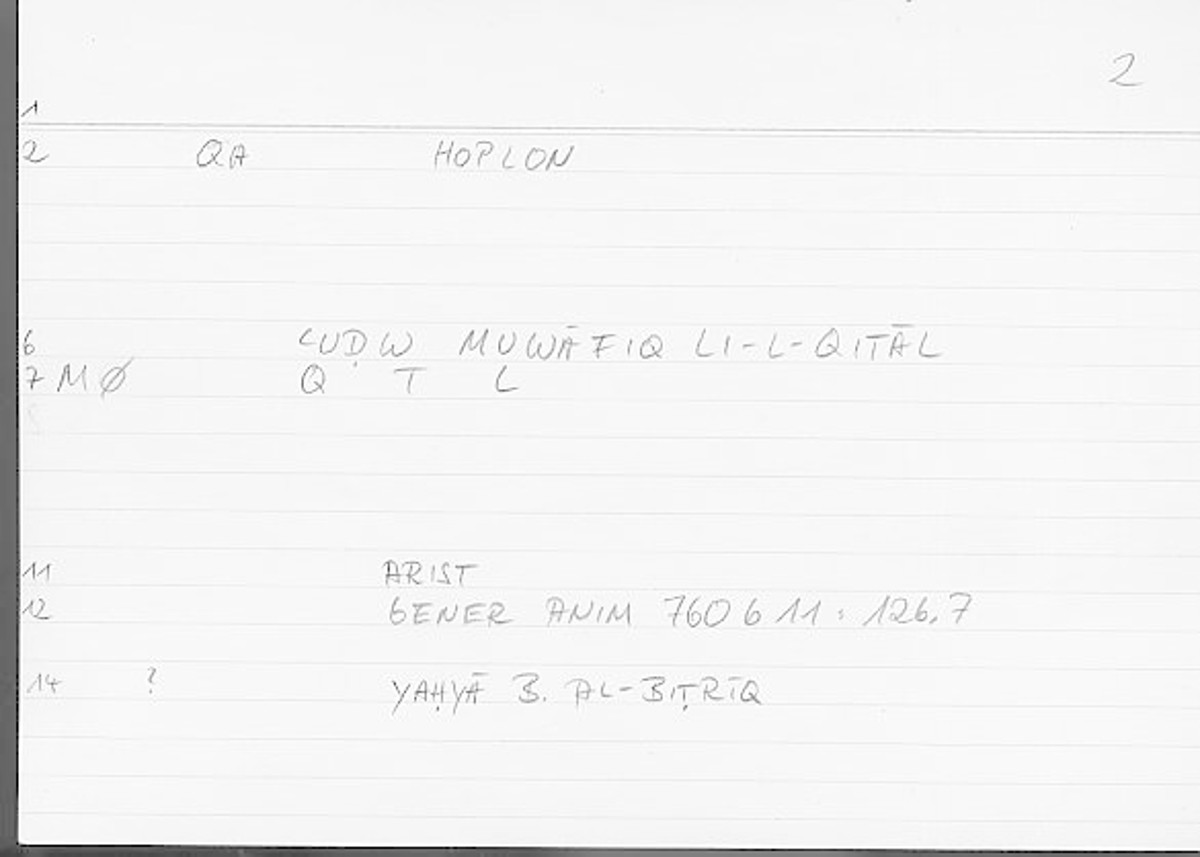 2
1
2 QA HOPLON
6 ʿUḌW MUWĀFIQ LI-L-QITĀL
7 MØ Q T L
11 ARIST
12 GENER ANIM 760 b 11 : 126,7
14 ? YAḤYĀ B. AL-BIṬRĪQ